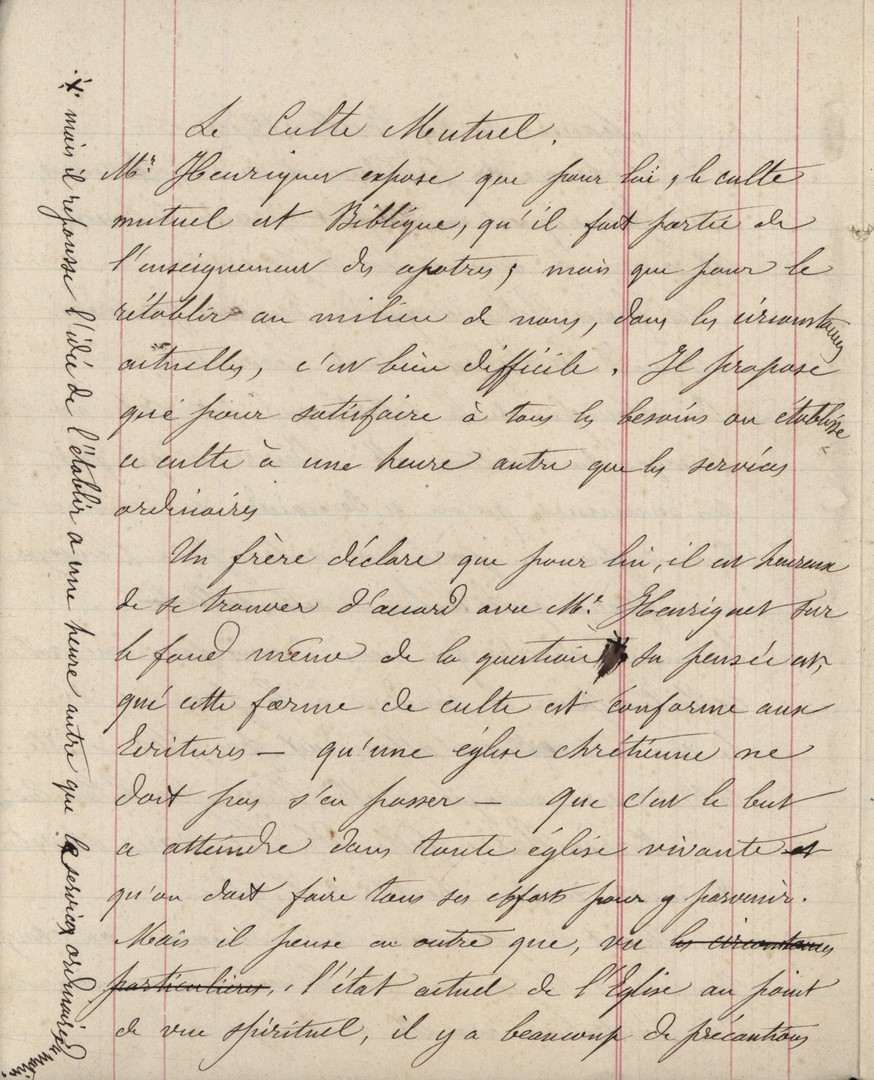 Le Culte Mutuel.
Mr. Henriquet expose que pour lui, le culte
mutuel est Biblique, qu'il fait partie de
l'enseignement des apotres; mais que pour le
rétablir au milieu de nous, dans les circonstances
actuelles, c'est bien difficile. Il propose
que pour satisfaire à tous les besoins on établisse
ce culte à une heure autre que les services
ordinaires
Un frère déclare que pour lui, il est heureux
de se trouver d'accord avec Mr. Henriquet sur
le fond même de la question sa pensée est,
que cette forme de culte est conforme aux
Ecritures — qu'une église chrétienne ne
doit pas s'en passer — que c'est le but
a atteindre dans toute église vivante et
qu'on doit faire tous ses efforts pour y parvenir.
Mais il pense en outre que, vu les circonstances
particulières, l'état actuel de l'Eglise au point
de vue spirituel, il y a beaucoup de précautions
mais il repousse l'idée de l'établir a une heure autre que le service ordinaire